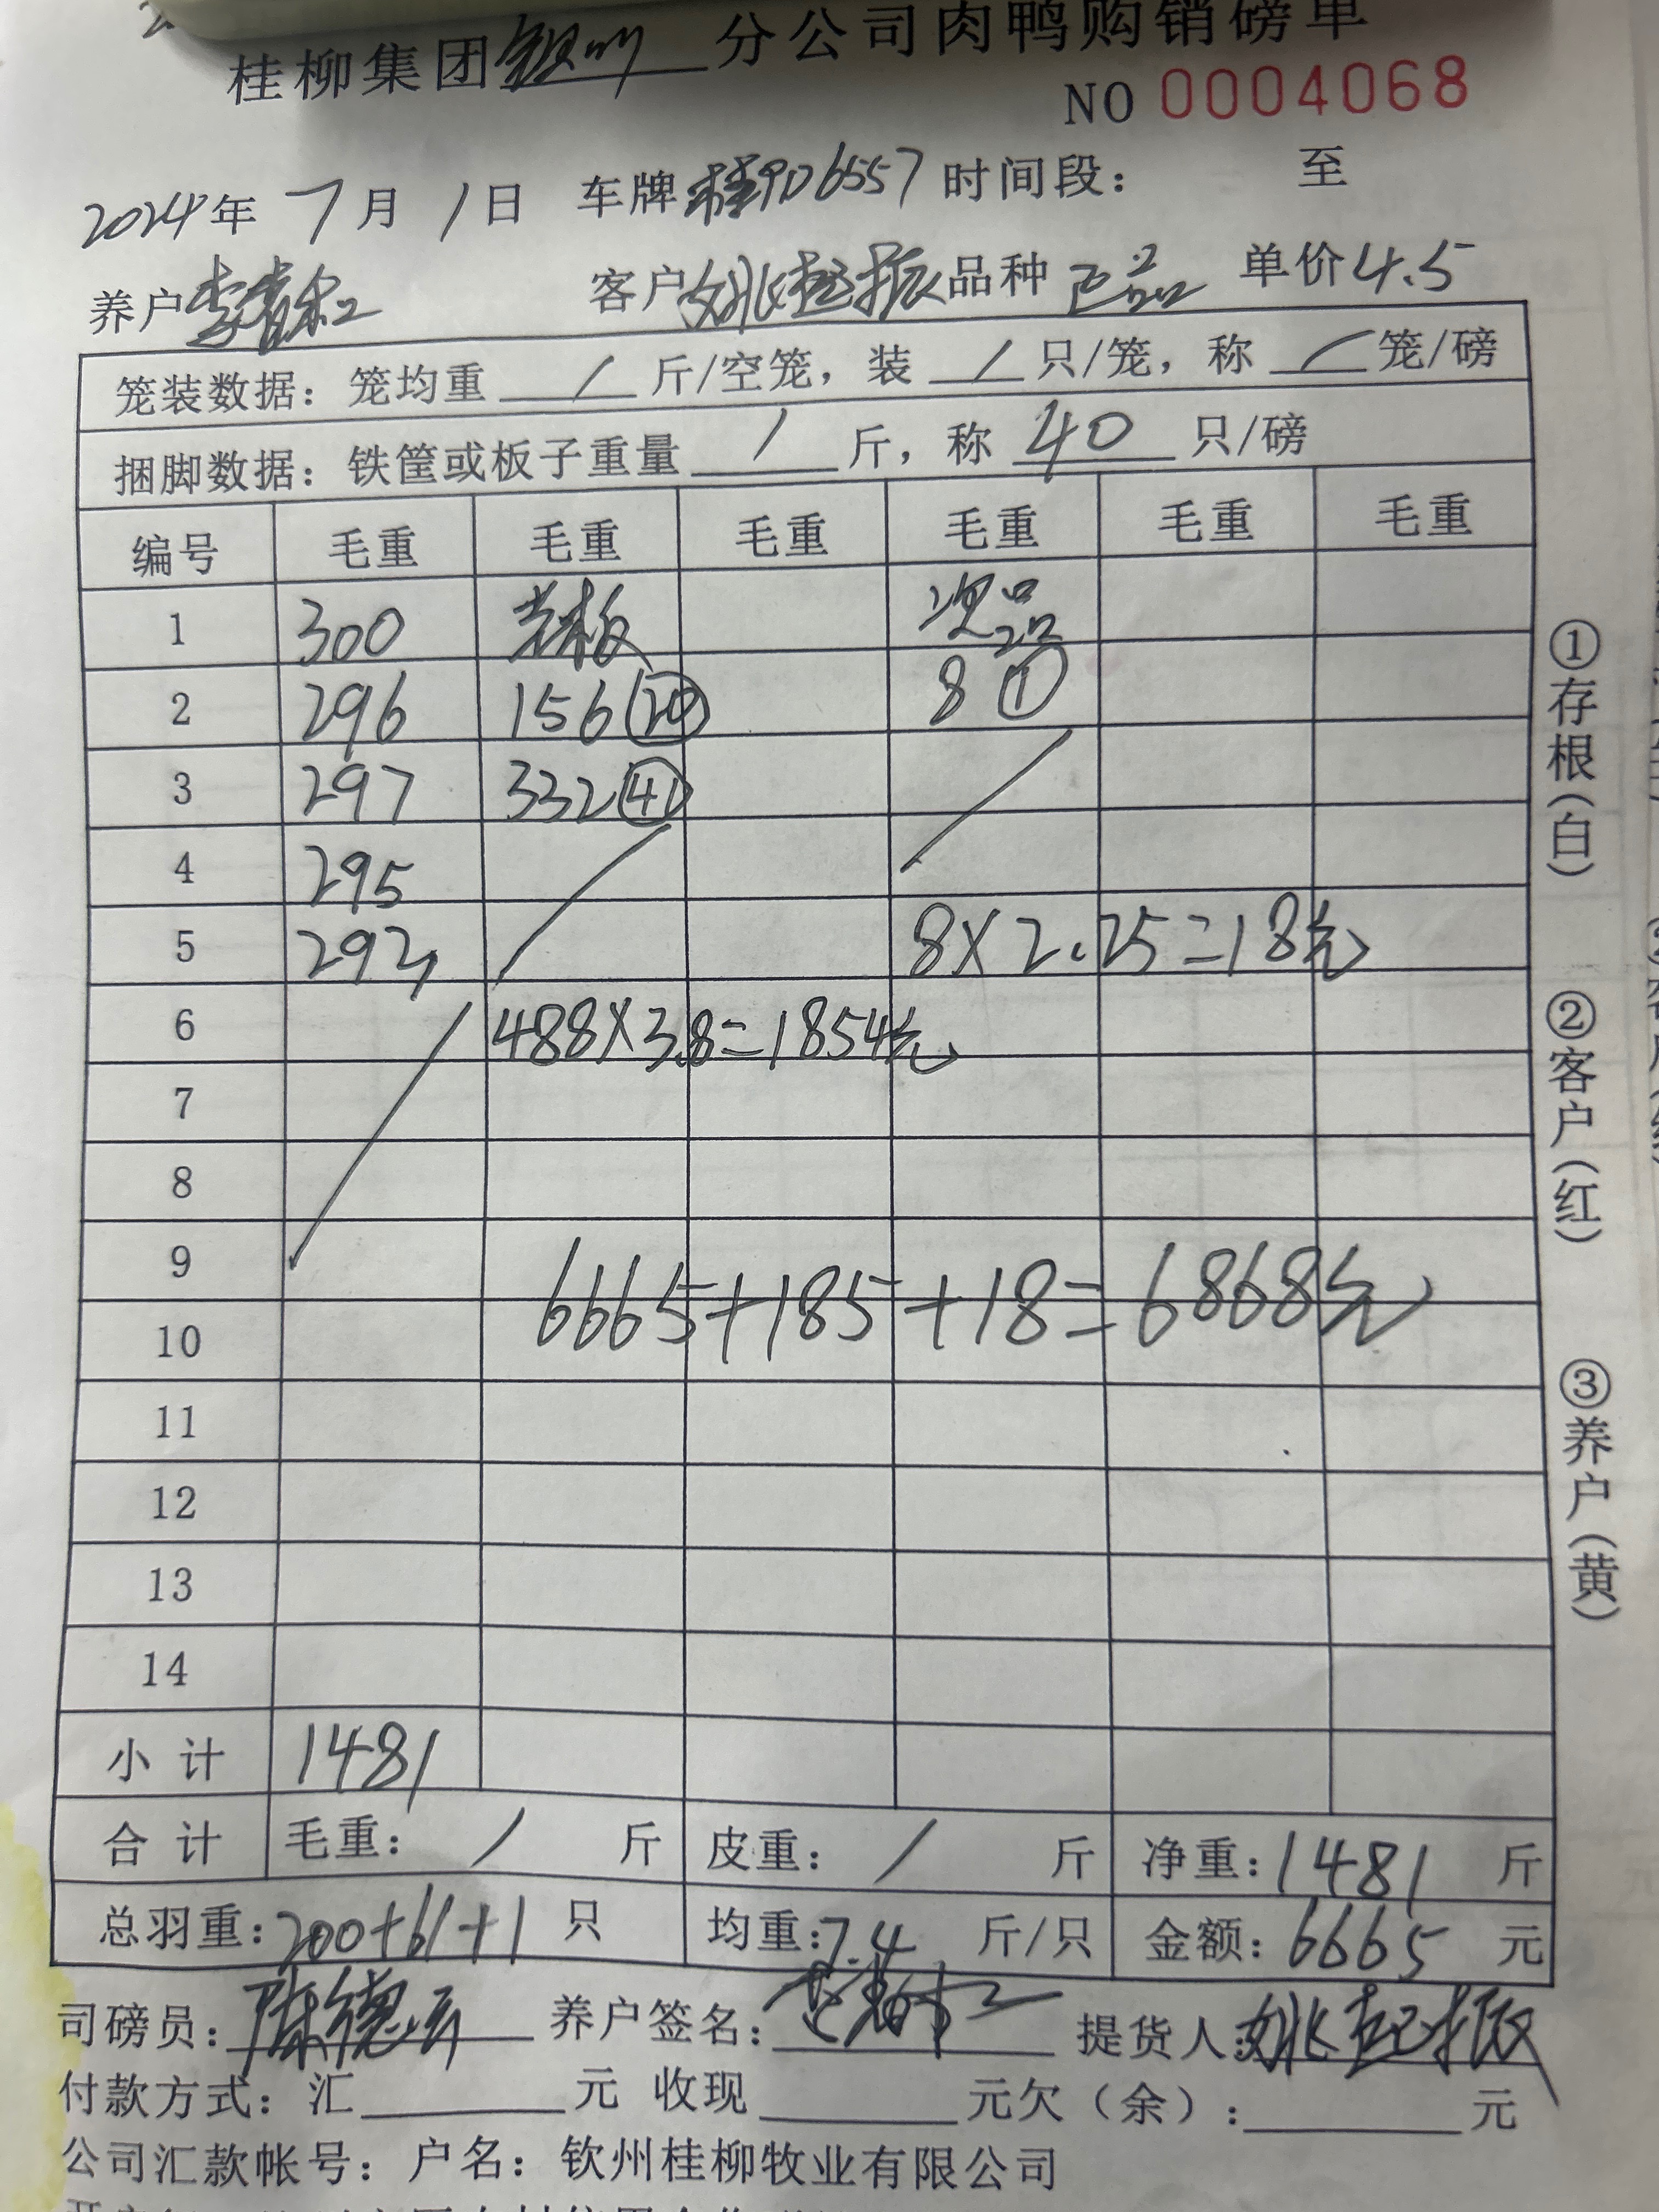 桂柳集团钦州分公司肉鸭购销磅单
NO 0004068
2024年 7月 1日 车牌桂PD6557 时间段： 至
养户李 客户姚起振 品种 正品 单价4.5
笼装数据：笼均重 / 斤/空笼，装 / 只/笼，称 / 笼/磅
捆脚数据：铁筐或板子重量 / 斤，称 40 只/磅
编号 毛重 毛重 毛重 毛重 毛重 毛重
1 300 老板 次品
2 296 156⑳ 8①
3 297 332㊶
4 295
5 292 8×2.25=18元
6 488×3.8=1854元
7
8
9
6665+185+18=6868元
10
11
12
13
14
小计 1481
合计 毛重： / 斤 皮重： / 斤 净重：1481 斤
总羽重：200+61+1 只 均重：7.4 斤/只 金额：6665 元
司磅员：陈德 养户签名：李 提货人：姚起振
付款方式：汇 元 收现 元欠（余）： 元
公司汇款帐号：户名：钦州桂柳牧业有限公司
①存根（白）
②客户（红）
③养户（黄）